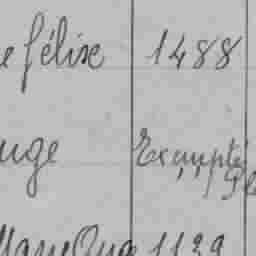 e félix 1488
uge Exempté
1139